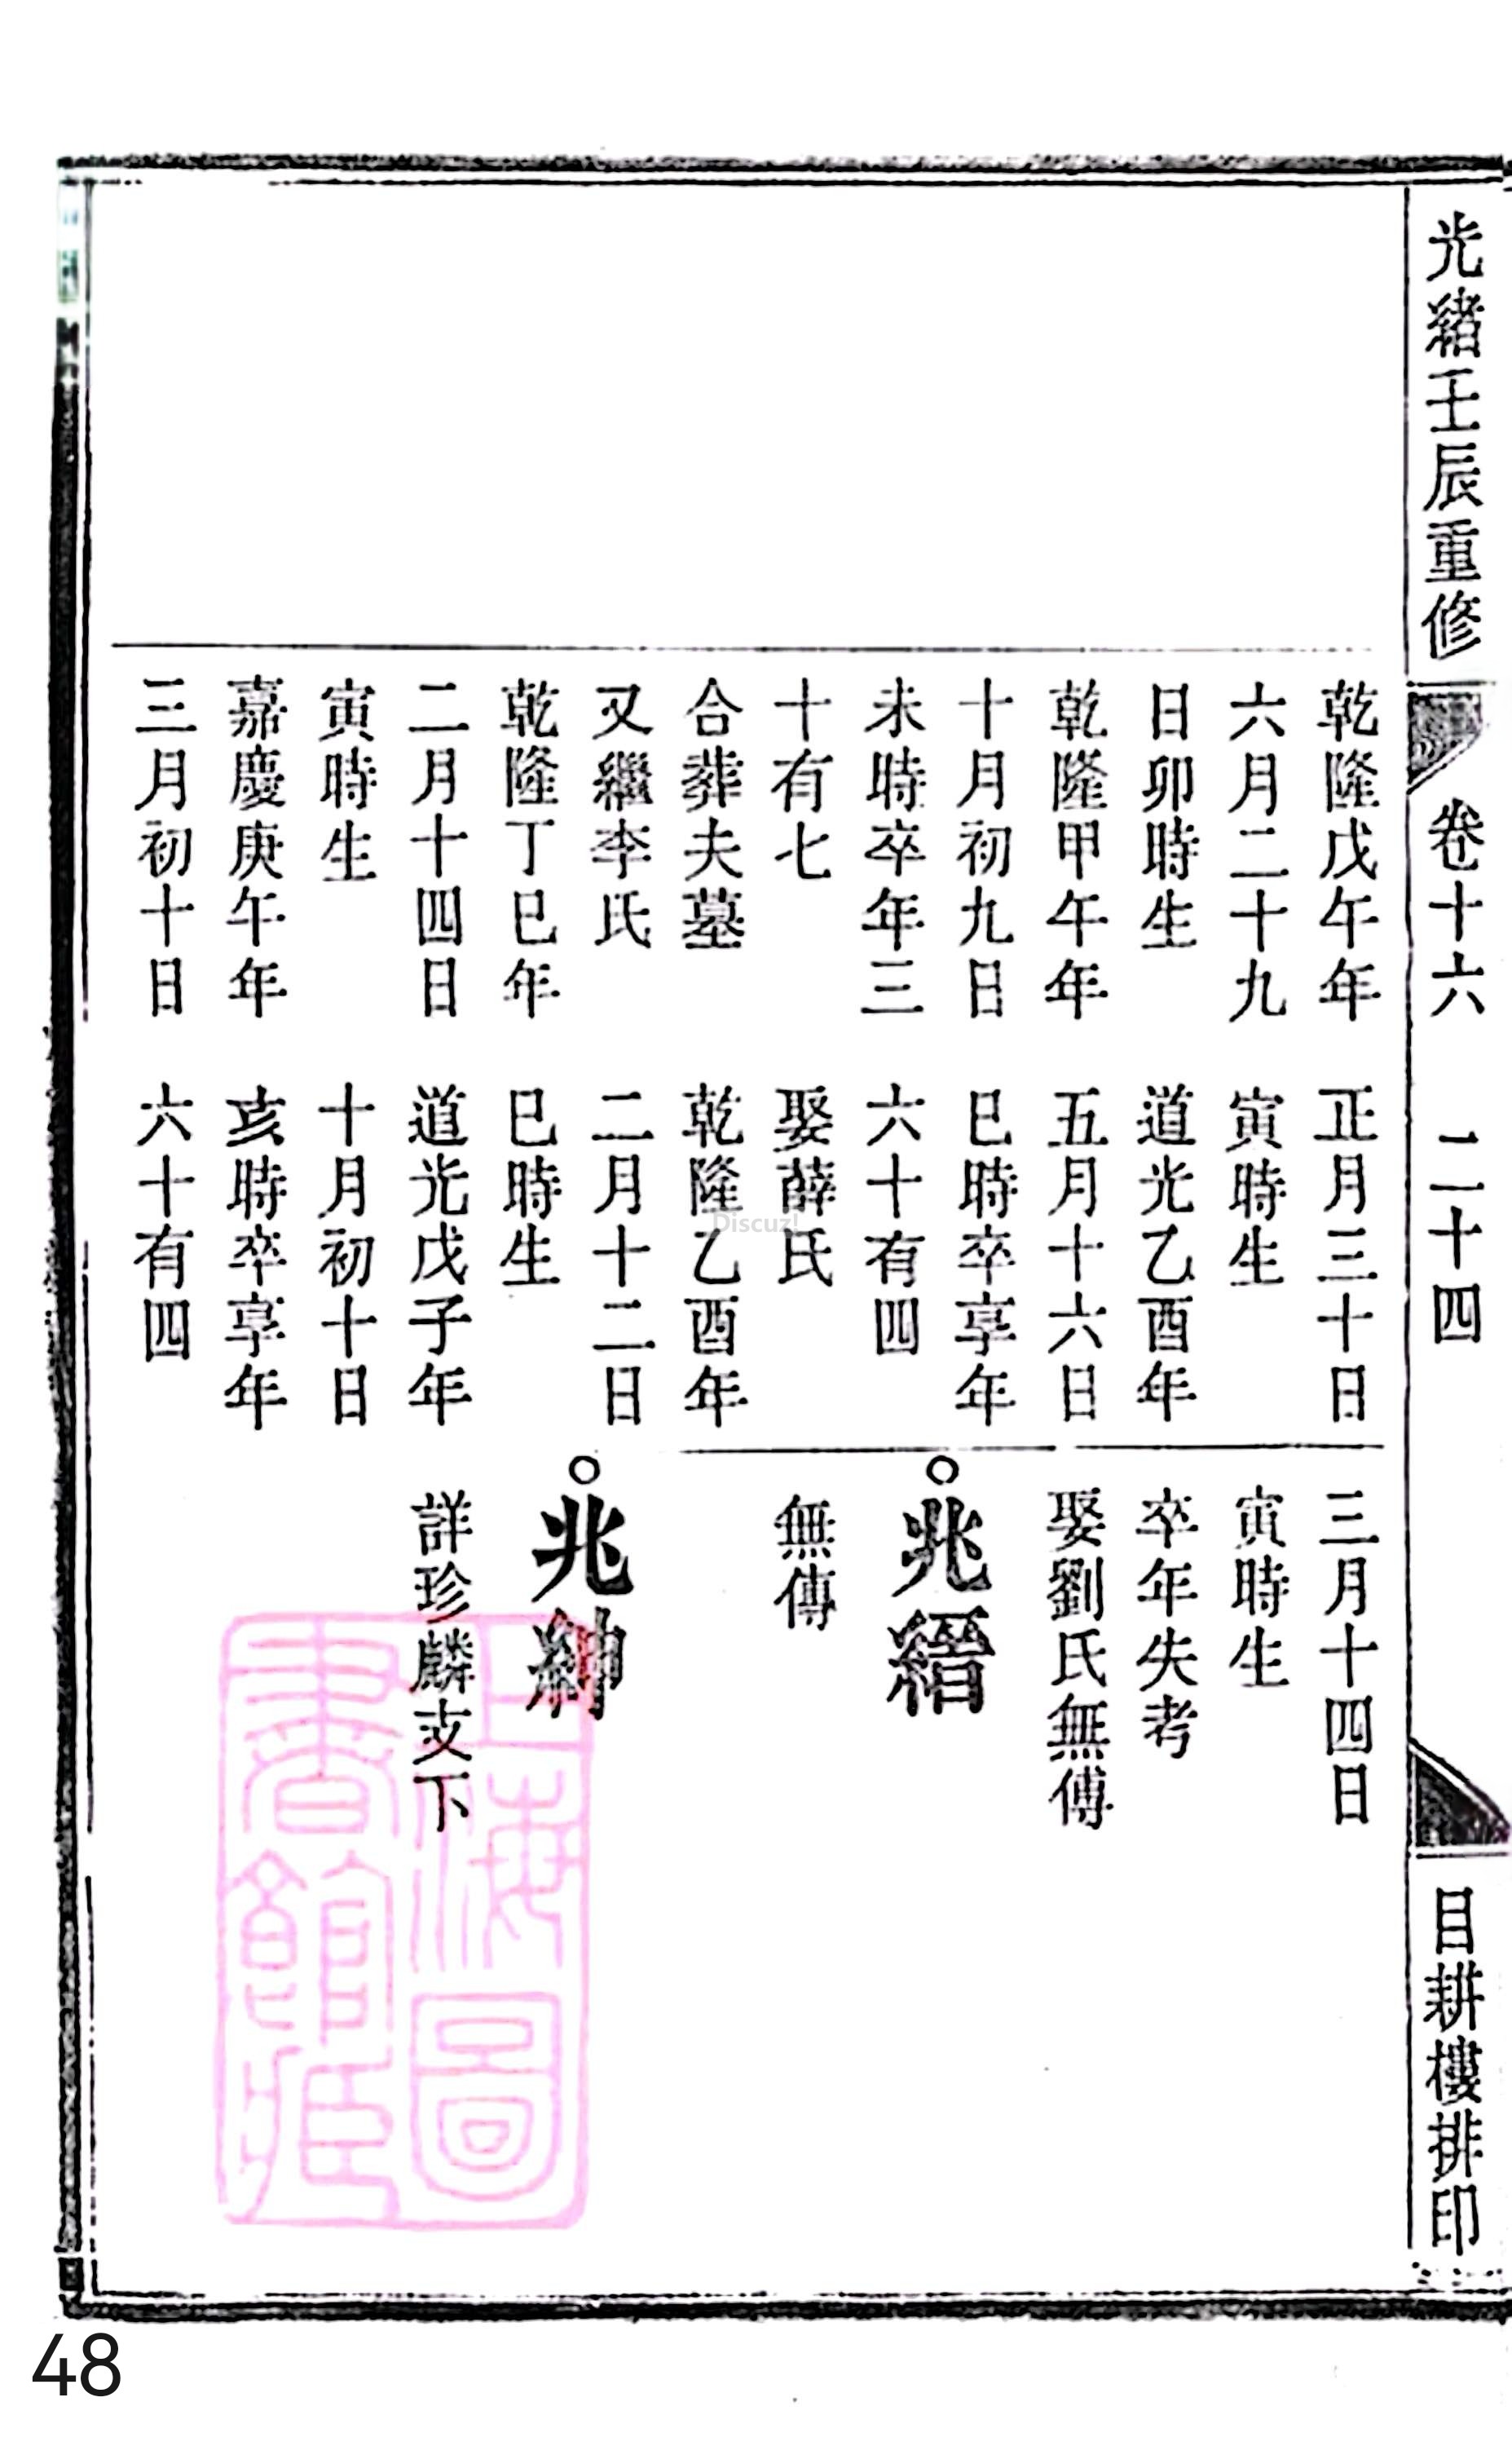 光緒壬辰重修
卷十六
二十四
目耕樓排印
乾隆戊午年
六月二十九
日卯時生
乾隆甲午年
十月初九日
未時卒年三
十有七
合葬夫墓
又繼李氏
乾隆丁巳年
二月十四日
寅時生
嘉慶庚午年
三月初十日
正月三十日
寅時生
道光乙酉年
五月十六日
巳時卒享年
六十有四
娶薛氏
乾隆乙酉年
二月十二日
巳時生
道光戊子年
十月初十日
亥時卒享年
六十有四
三月十四日
寅時生
卒年失考
娶劉氏無傳
兆縉
無傳
兆紳
詳珍麟支下
上海圖
書館藏
Discuz!
48